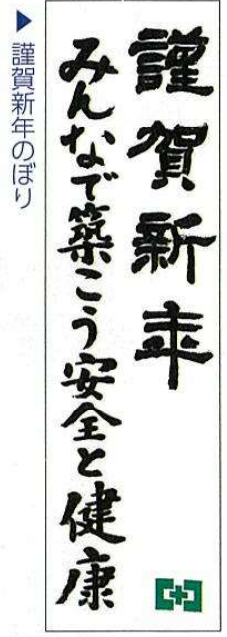 謹賀新年
みんなで築こう安全と健康
▶謹賀新年のぼり